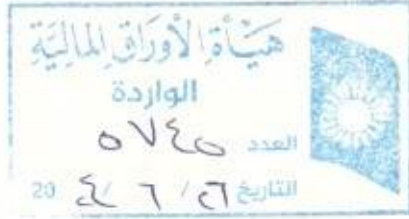 هَيْأَة الأَوْرَاقِ المَالِيَّةِ
الواردة
العدد ٥٧٤٥
التاريخ ٢٦ / ٦ / ٢٤ 20